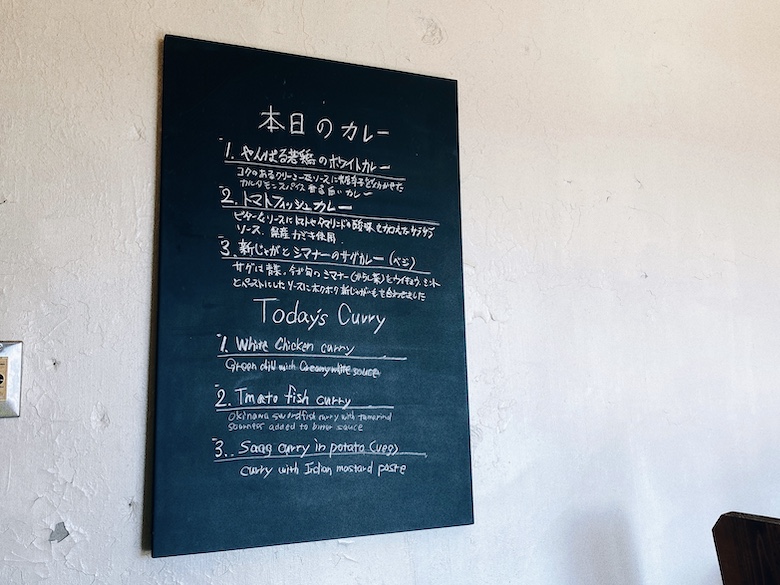 本日のカレー
1. やんばる若鶏のホワイトカレー
コクのあるクリーミーなソースに青唐辛子をきかせた
カルダモンスパイス香る白いカレー
2. トマトフィッシュカレー
ビターなソースにトマトとタマリンドの酸味を加えたサラサラ
ソース、県産カジキ使用
3. 新じゃがとシマナーのサグカレー(ベジ)
サグは青菜。今が旬のシマナー(からし菜)をウイキョウ、ミント
とペーストにしたソースにホクホク新じゃがいもを合わせました
Today's Curry
1. White Chicken curry
Green chili with Creamy white sauce
2. Tmato fish curry
Okinawa swordfish curry with tamarind
sourness added to bitter sauce
3.. Saag curry in potato (veg)
curry with Indian mastard paste